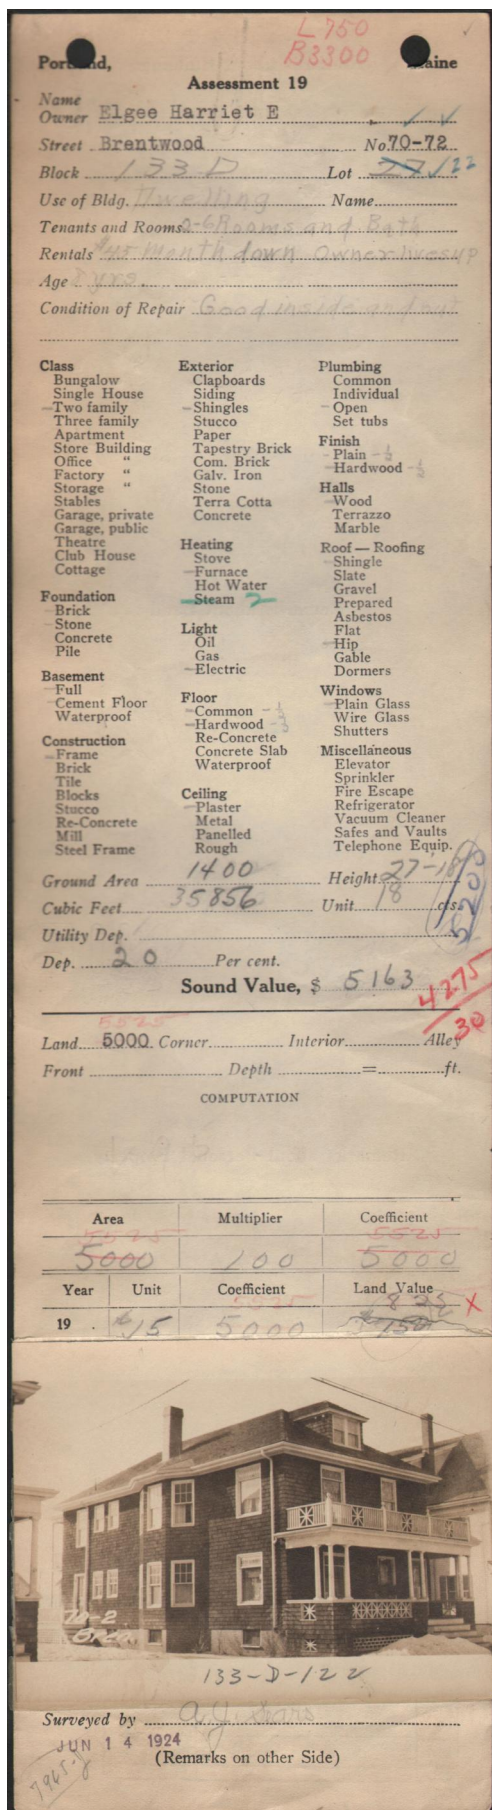 L 750
B 3300
Portland, Maine
Assessment 19
Name
Owner Elgee Harriet E
Street Brentwood No. 70-72
Block 133 D Lot 27 122
Use of Bldg. Dwelling Name
Tenants and Rooms 2-6 Rooms and Bath
Rentals $45 month down Owner lives up
Age 8 yrs.
Condition of Repair Good inside and out
Class
Bungalow
Single House
Two family
Three family
Apartment
Store Building
Office "
Factory "
Storage "
Stables
Garage, private
Garage, public
Theatre
Club House
Cottage
Foundation
Brick
Stone
Concrete
Pile
Basement
Full
Cement Floor
Waterproof
Construction
Frame
Brick
Tile
Blocks
Stucco
Re-Concrete
Mill
Steel Frame
Exterior
Clapboards
Siding
Shingles
Stucco
Paper
Tapestry Brick
Com. Brick
Galv. Iron
Stone
Terra Cotta
Concrete
Heating
Stove
Furnace
Hot Water
Steam 2
Light
Oil
Gas
Electric
Floor
Common - ½
Hardwood - ½
Re-Concrete
Concrete Slab
Waterproof
Ceiling
Plaster
Metal
Panelled
Rough
Plumbing
Common
Individual
Open
Set tubs
Finish
Plain - ½
Hardwood - ½
Halls
Wood
Terrazzo
Marble
Roof — Roofing
Shingle
Slate
Gravel
Prepared
Asbestos
Flat
Hip
Gable
Dormers
Windows
Plain Glass
Wire Glass
Shutters
Miscellaneous
Elevator
Sprinkler
Fire Escape
Refrigerator
Vacuum Cleaner
Safes and Vaults
Telephone Equip.
Ground Area 1400 Height 27-18
Cubic Feet 35856 Unit 18 cts.
5200
Utility Dep.
Dep. 20 Per cent.
Sound Value, $ 5163
4275
30
5525
Land 5000 Corner Interior Alley
Front Depth = ft.
COMPUTATION
Area Multiplier Coefficient
5525 5525
5000 100 5000
Year Unit Coefficient Land Value
5525 825 X
19 $15 5000 $750
70-2
Bren.
133-D-122
Surveyed by A.J. Sars
JUN 14 1924
(Remarks on other Side)